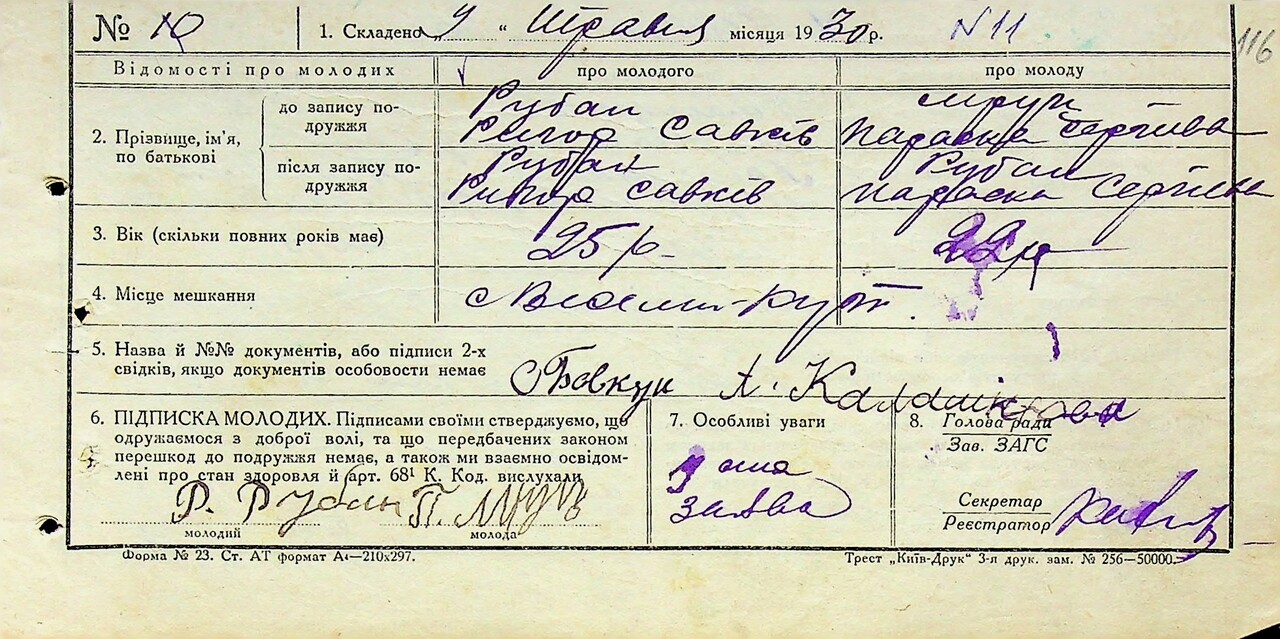 № 10 1. Складено 9 " Травня місяця 1930 р. N 11
116
Відомості про молодих про молодого про молоду
2. Прізвище, ім'я, по батькові
до запису подружжя
Рубан
Ригор Савків
Мрун
Параска Сергієва
після запису подружжя
Рубан
Ригор Савків
Рубан
Параска Сергієва
3. Вік (скільки повних років має) 25 р. 22 р
4. Місце мешкання с
5. Назва й №№ документів, або підписи 2-х
свідків, якщо документів особовости немає Бовкун А. Калашнікова
6. ПІДПИСКА МОЛОДИХ. Підписами своїми стверджуємо, що
одружаємося з доброї волі, та що передбачених законом
перешкод до подружжя немає, а також ми взаємно освідом-
лені про стан здоров'я й арт. 68¹ К. Код. вислухали
Р. Рубан П. Мрун
молодий молода
7. Особливі уваги
заява
8. Голова ради
Зав. ЗАГС
Секретар
Реєстратор
Форма № 23. Ст. АТ формат А4—210x297.
Трест „Київ-Друк" 3-я друк. зам. № 256—50000.